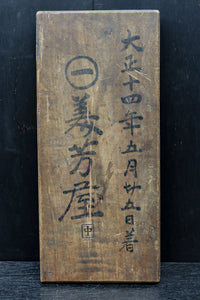 大正十四年五月廿五日着
㊀美芳屋
中